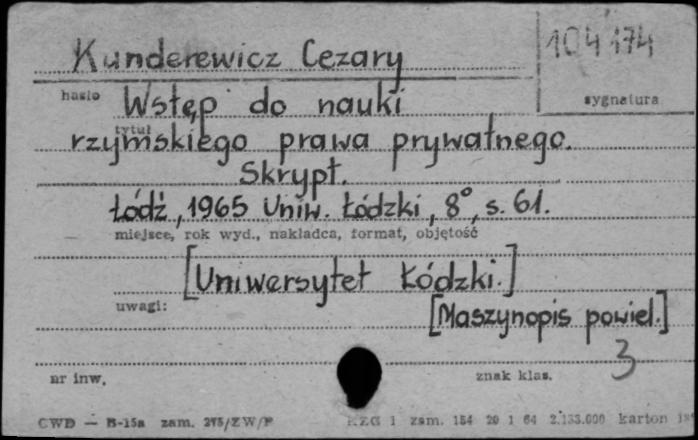 Kunderewicz Cezary
104174
hasło
sygnatura
Wstęp do nauki
tytuł
rzymskiego prawa prywatnego.
Skrypt.
Łódź, 1965 Uniw. Łódzki, 8°, s. 61.
miejsce, rok wyd., nakładca, format, objętość
[Uniwersytet Łódzki.]
uwagi:
[Maszynopis powiel.]
3
nr inw.
znak klas.
CWD — B-15a zam. 275/ZW/P
RZG 1 zam. 154 20 1 64 2.133.000 karton